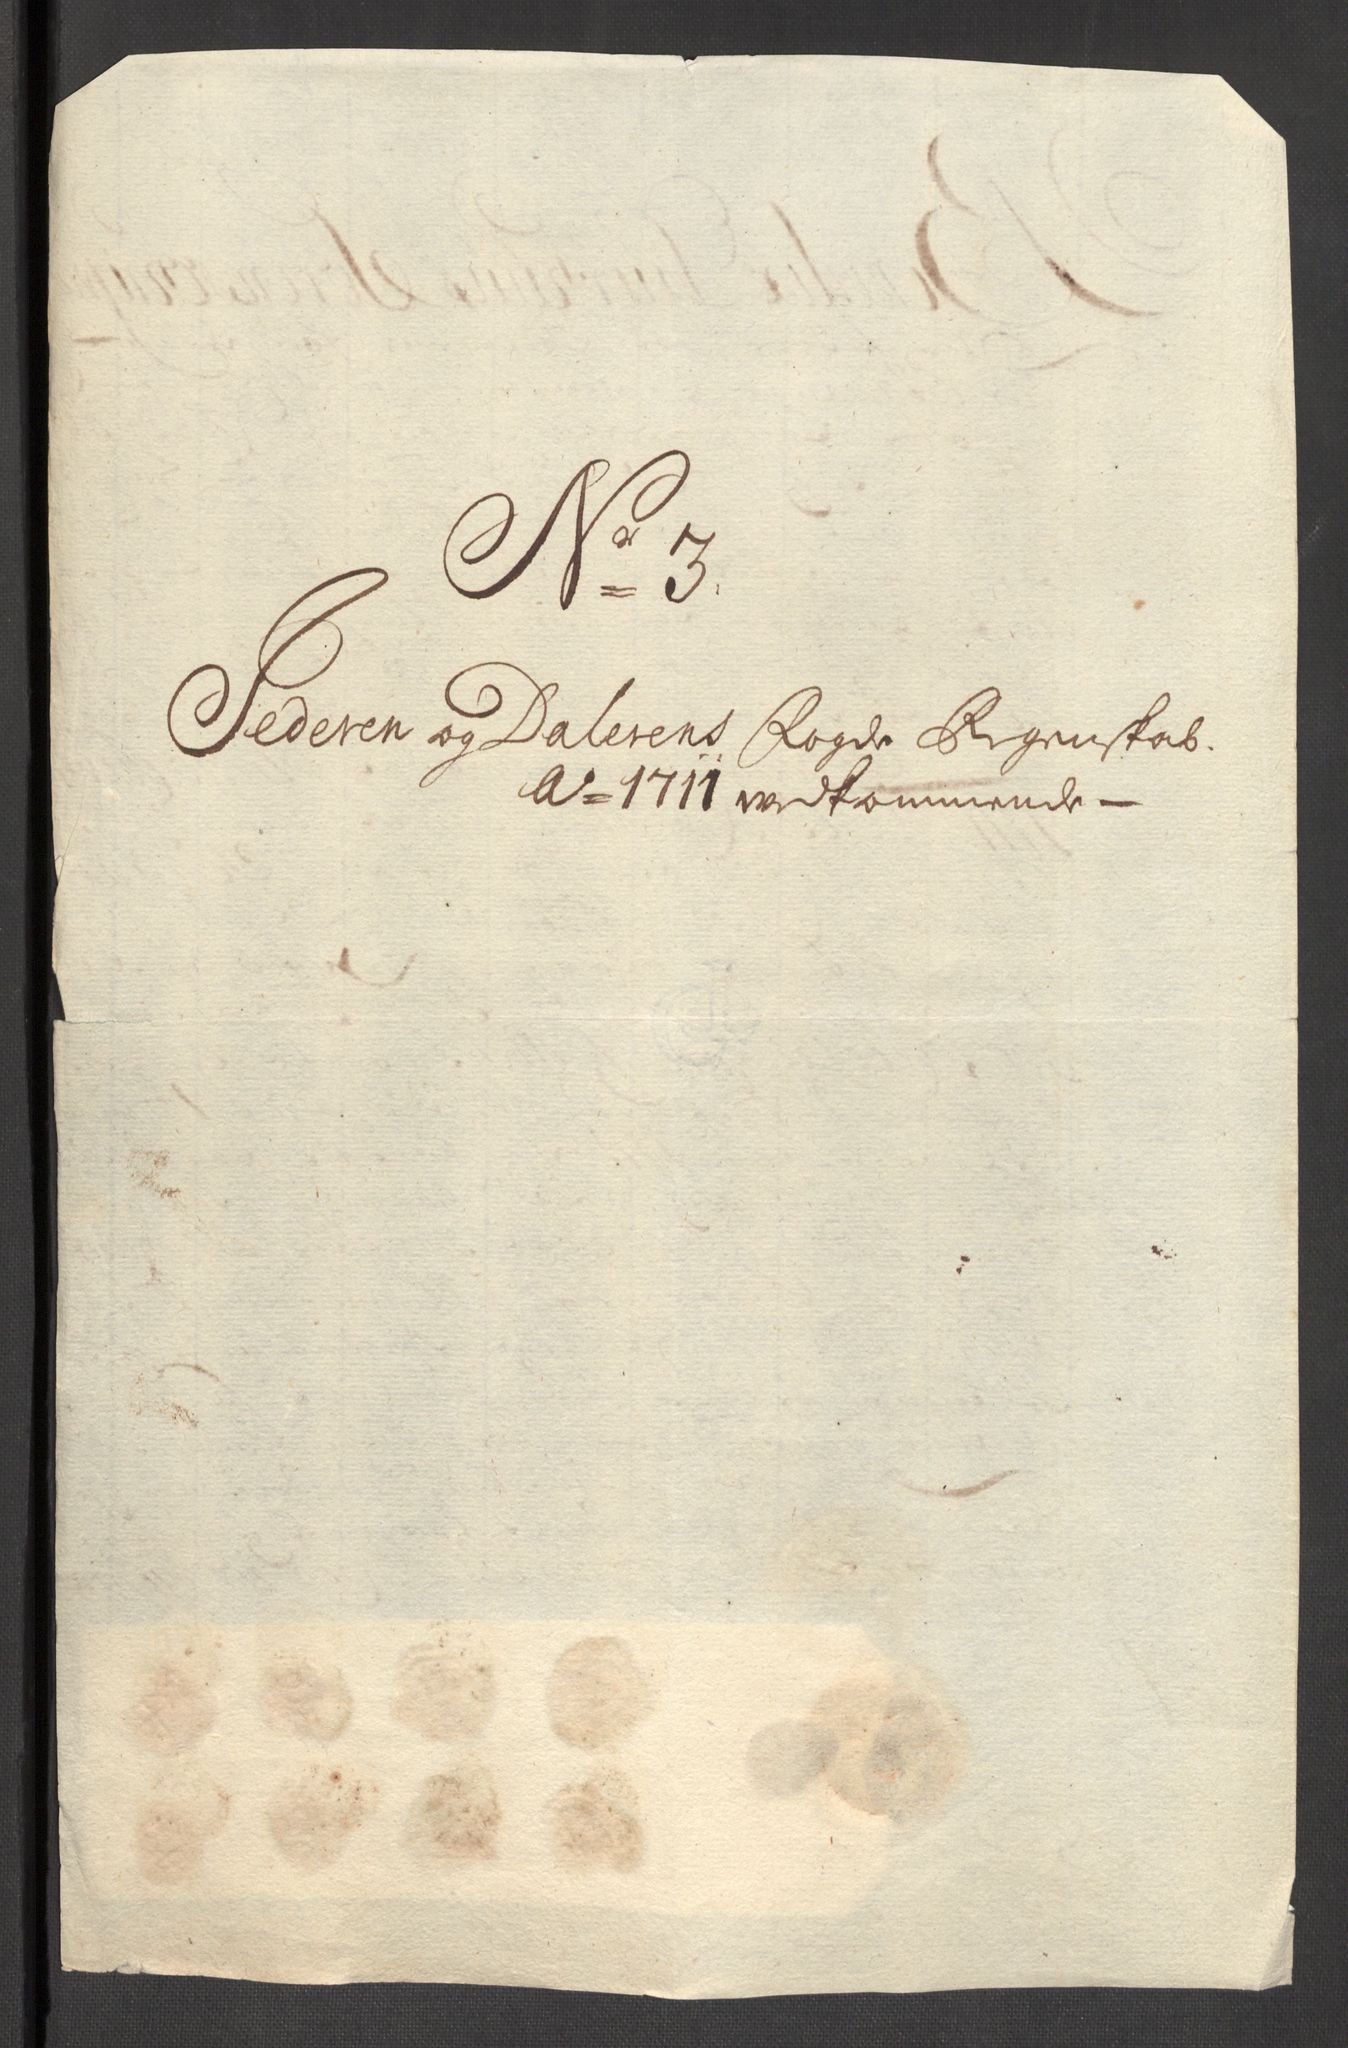 No 3.
Jederen og Dalerens Fogde Regenskab.
Ao 1711 vedkommende —